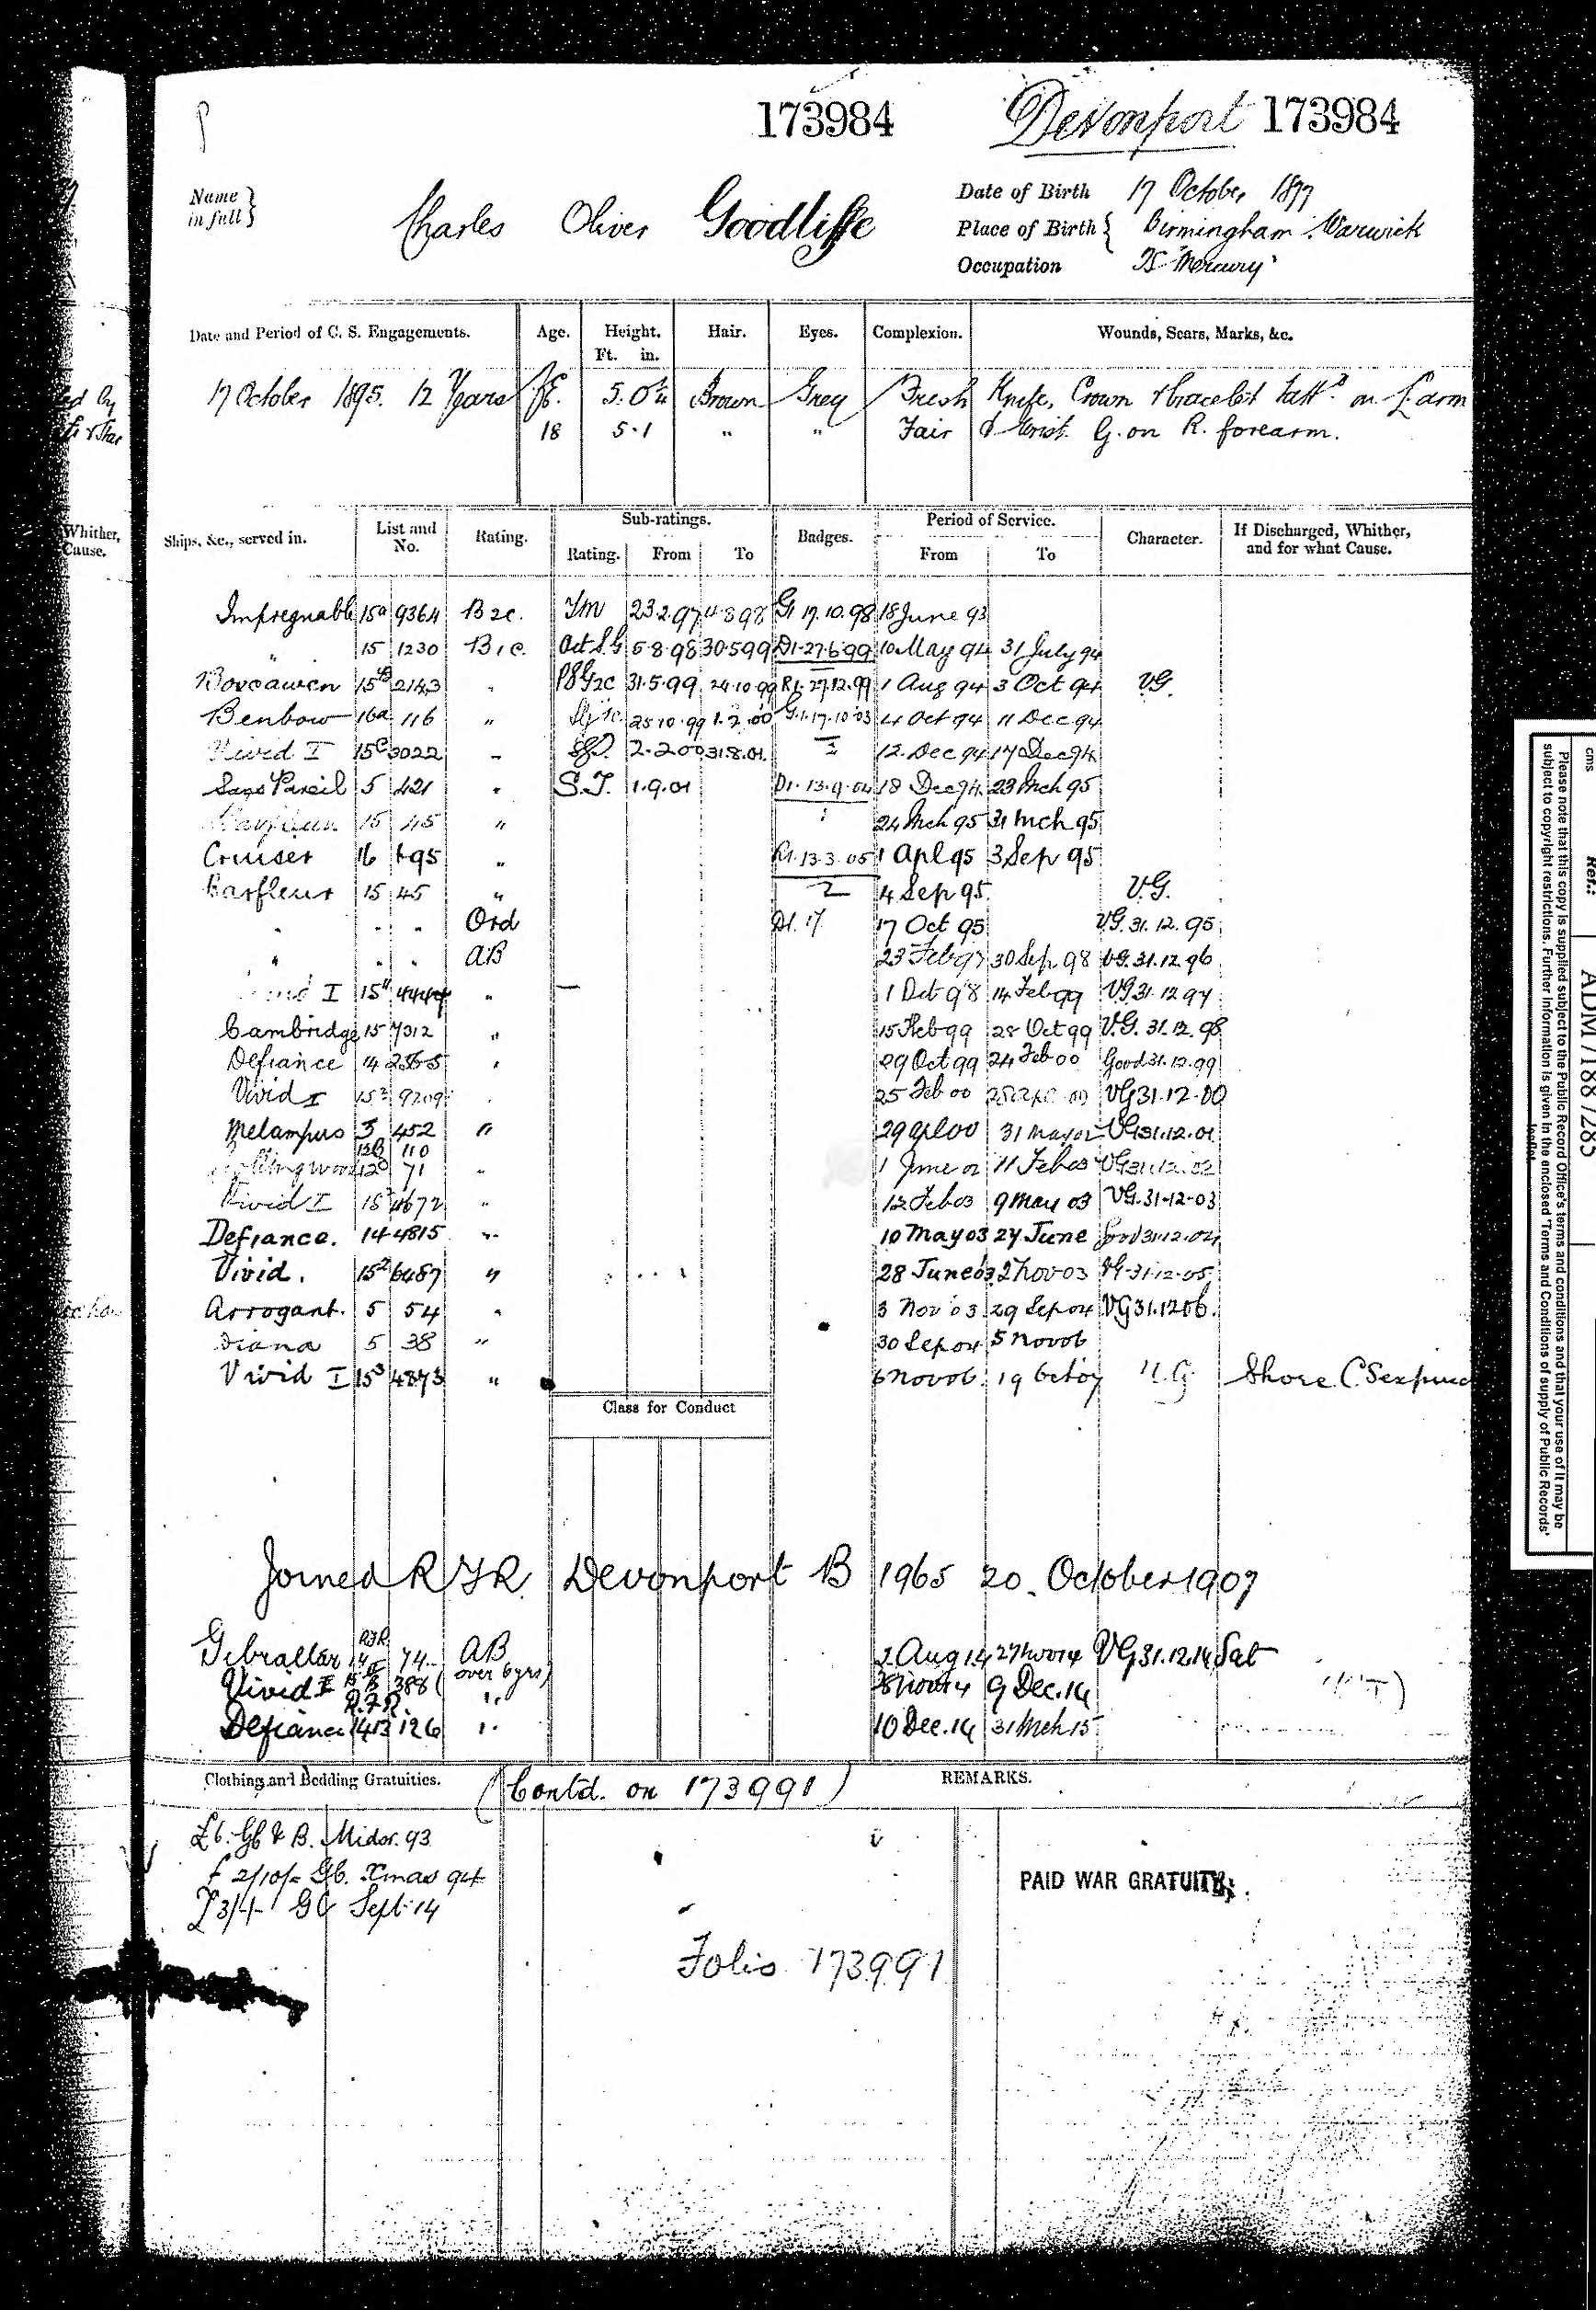 173984 Devonport 173984
Name in full } Charles Oliver Goodliffe
Date of Birth 17 October 1877
Place of Birth { Birmingham Warwick
Occupation TS "Mercury"
Date and Period of C. S. Engagements. Age. Height. Ft. in. Hair. Eyes. Complexion. Wounds, Scars, Marks, &c.
17 October 1895. 12 Years 5. 0¼ Brown Grey Fresh Knife, Crown & bracelet tattd. on L arm
18 5.1 " " Fair & Wrist. G. on R. forearm.
Whither, Cause.
Ships, &c., served in. List and No. Rating. Sub-ratings. Rating. From To Badges. Period of Service. From To Character. If Discharged, Whither, and for what Cause.
Impregnable 15a 9364 B2c. TM 23.2.97 4.8.98 G1 17.10.98 18 June 93
" 15 1230 B1c. Act S.G 5.8.98 30.5.99 D1.27.6.99 10 May 94 31 July 94
Boscawen 15B 2143 " 31.5.99 24.10.99 R1.27.12.99 1 Aug 94 3 Oct 94 VG.
Benbow 16a 116 " 25.10.99 1.2.00 G.1.17.10.03 4 Oct 94 11 Dec 94
Vivid I 15C 3022 " 2.2.00 31.8.01. 2 12. Dec 94 17 Dec 94
Sans Pareil 5 421 " S.T. 1.9.01 D1.13.9.04 18 Dec 94 23 Mch 95
15 45 " 1 24 Mch 95 31 Mch 95
Cruiser 16 " R1.13.3.05 1 Apl 95 3 Sep 95
Barfleur 15 45 " 2 4 Sep 95. V.G.
" " " Ord 17 Oct 95 VG. 31.12.95
" " " AB 23 Feb 97 30 Sep 98 VG. 31.12.96
I 15 " 1 Oct 98 14 Feb 99 VG 31.12 97
Cambridge 15 7312 " 15 Feb 99 28 Oct 99 V.G. 31.12.98
Defiance 14 " 29 Oct 99 24 Feb 00 Good 31.12.99
Vivid I 15 9209 " 25 Feb 00 VG 31.12.00
Melampus 5 452 " 29 Apl 00 31 May 02 VG 31.12.01
12B 110
Collingwood 12D 71 " 1 June 02 11 Feb 03 VG 31.12.02
Vivid I 15 4672 " 12 Feb 03 9 May 03 VG. 31-12-03
Defiance. 14 4815 " 10 May 03 27 June Good 31.12.04
Vivid. 15² 6487 " 28 June 03 2 Nov 03 VG-31-12-05
Arrogant. 5 54 " 3 Nov 03 29 Sep 04 VG 31.12 06.
Diana 5 38 " 30 Sep 04 5 Nov 06
Vivid I 15³ 4873 " 6 Nov 06. 19 Oct 07 V.G. Shore C.S expired
Class for Conduct
Joined R F R Devonport B 1965 20. October 1907
Gibraltar RFR 74 AB 2 Aug 14 27 Nov 14 VG 31.12.14 Sat
Vivid I 388 (over 6 yrs) 28 Nov 14 9 Dec. 14
Defiance RFR 14B 126 " 10 Dec. 14 31 Mch 15
Clothing and Bedding Gratuities. (Contd. on 173991) REMARKS.
£6. Gb & B. Midsr. 93
£ 2/10/- Gb. Xmas 94
£3/-/- Sept. 14
PAID WAR GRATUITY.
Folio 173991
cms
Ref.: ADM / 188 / 285
Please note that this copy is supplied subject to the Public Record Office's terms and conditions and that your use of it may be
subject to copyright restrictions. Further information is given in the enclosed 'Terms and Conditions of supply of Public Records'
leaflet